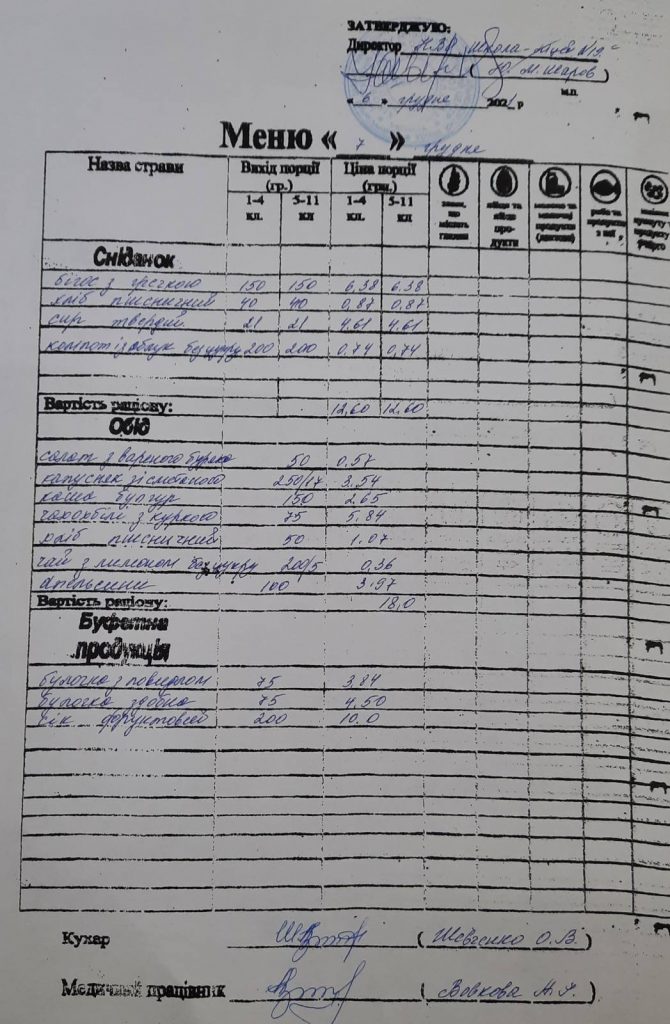 ЗАТВЕРДЖУЮ:
Директор НВК школа-
( Ю. М. )
« 6 » грудня 2021 р
м.п.
Меню « 7 » грудня
Назва страви Вихід порції (гр.) Ціна порції (грн.)
1-4 кл. 5-11 кл 1-4 кл. 5-11 кл
злаки, що містять глютен
яйце та яйце продукти
молоко та молочні продукти (лактоза)
риба та продукти з неї
Сніданок
бігос з гречкою 150 150 6,38 6,38
хліб пшеничний 40 40 0,87 0,87
сир твердий 21 21 4,61 4,61
компот із яблук без цукру 200 200 0,74 0,74
Вартість раціону: 12,60 12,60
Обід
салат з вареного буряка 50 0,57
капусняк зі сметаною 250/17 3,54
каша булгур 150 2,65
чахохбілі з куркою 75 5,84
хліб пшеничний 50 1.07
чай з лимоном без цукру 200/5 0,36
апельсини 100 3.97
Вартість раціону: 18,0
Буфетна продукція
булочка з повидлом 75 3,84
булочка здобна 75 4,50
сік фруктовий 200 10,0
Кухар ( Шевченко О.В. )
Медичний працівник ( Вовкова )